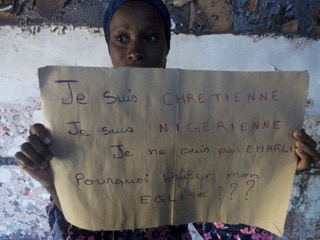 Je suis CHRETIENNE
Je suis NIGERIENNE
Je ne suis pas CHARLI
Pourquoi brûler mon
EGLISE ???